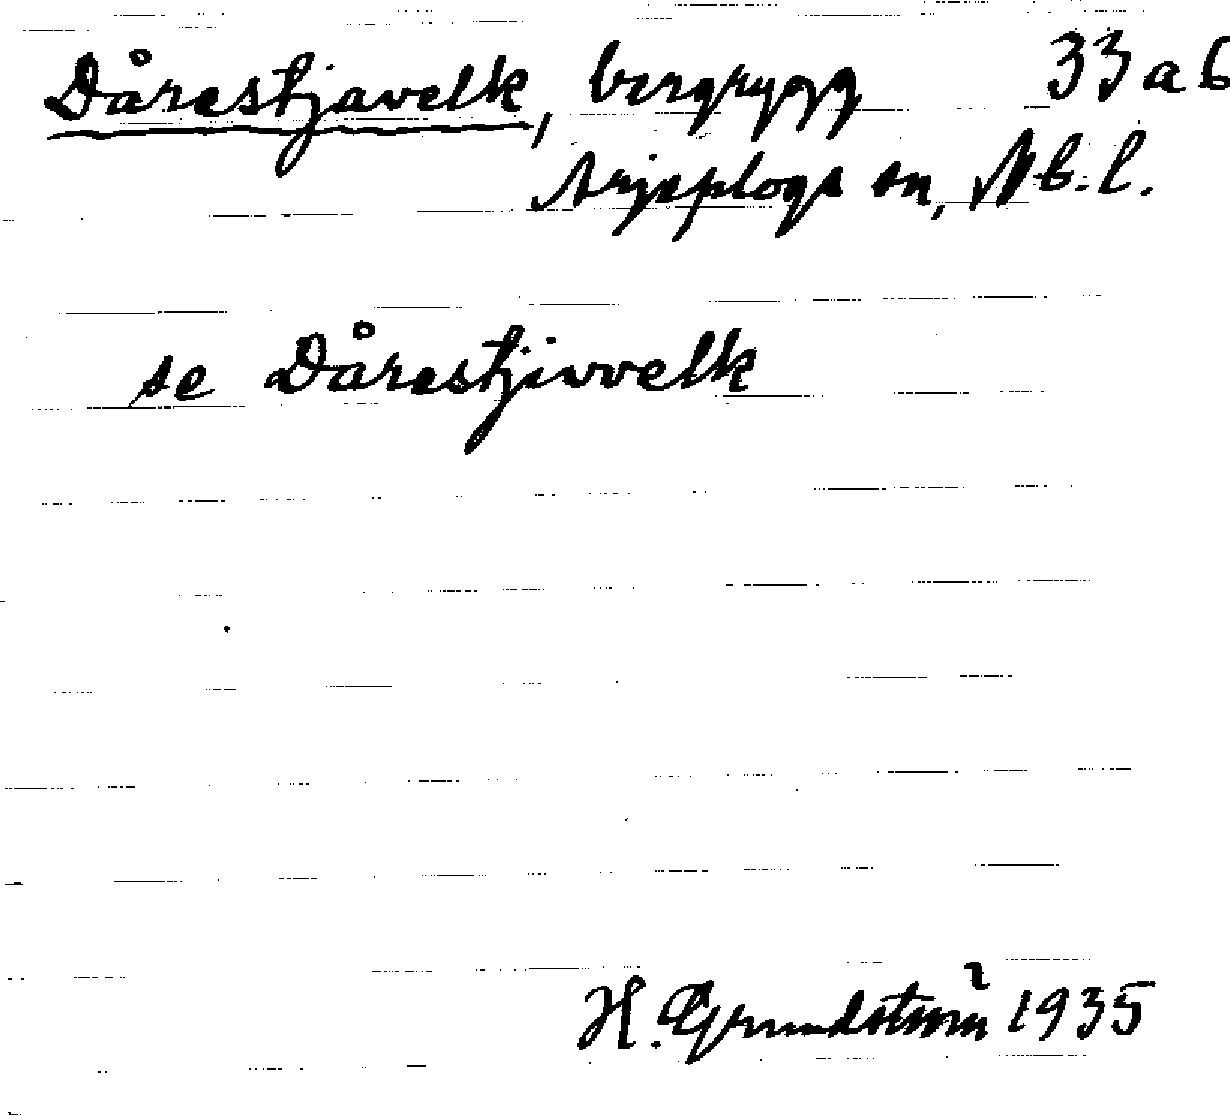 Dårestjavelk, bergrygg 33 a b
Arjeplogs sn, Nb. l.
se Dårestjivvelk
H. Grundström 1935